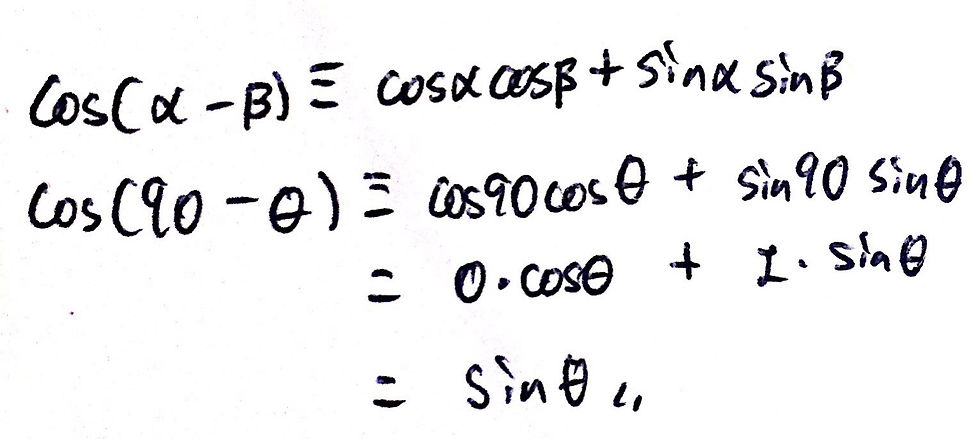 cos(α - β) ≡ cosα cosβ + sinα sinβ
cos(90 - θ) ≡ cos90 cosθ + sin90 sinθ
= 0·cosθ + 1·sinθ
= sinθ 〃